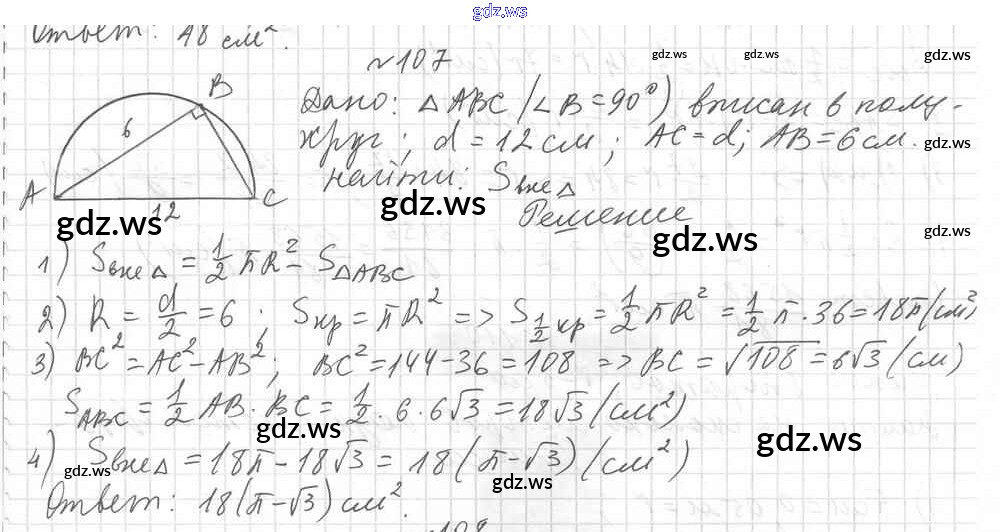 gdz.ws
Ответ: 48 см².
№107
gdz.ws gdz.ws gdz.ws
Дано: △ABC (∠B=90°) вписан в полу-
круг; d=12см; AC=d; AB=6см.
gdz.ws
найти: Sвне△
gdz.ws
A B C 6 12
gdz.ws
Решение
gdz.ws gdz.ws
1) Sвне△ = 1/2 πR² - S△ABC
2) R = d/2 = 6; Sкр = πR² => S1/2кр = 1/2 πR² = 1/2 π·36 = 18π (см²)
3) BC² = AC² - AB²; BC² = 144 - 36 = 108 => BC = √108 = 6√3 (см)
SABC = 1/2 AB·BC = 1/2·6·6√3 = 18√3 (см²)
gdz.ws gdz.ws
4) Sвне△ = 18π - 18√3 = 18(π-√3) (см²)
gdz.ws gdz.ws
Ответ: 18(π-√3) см².
108